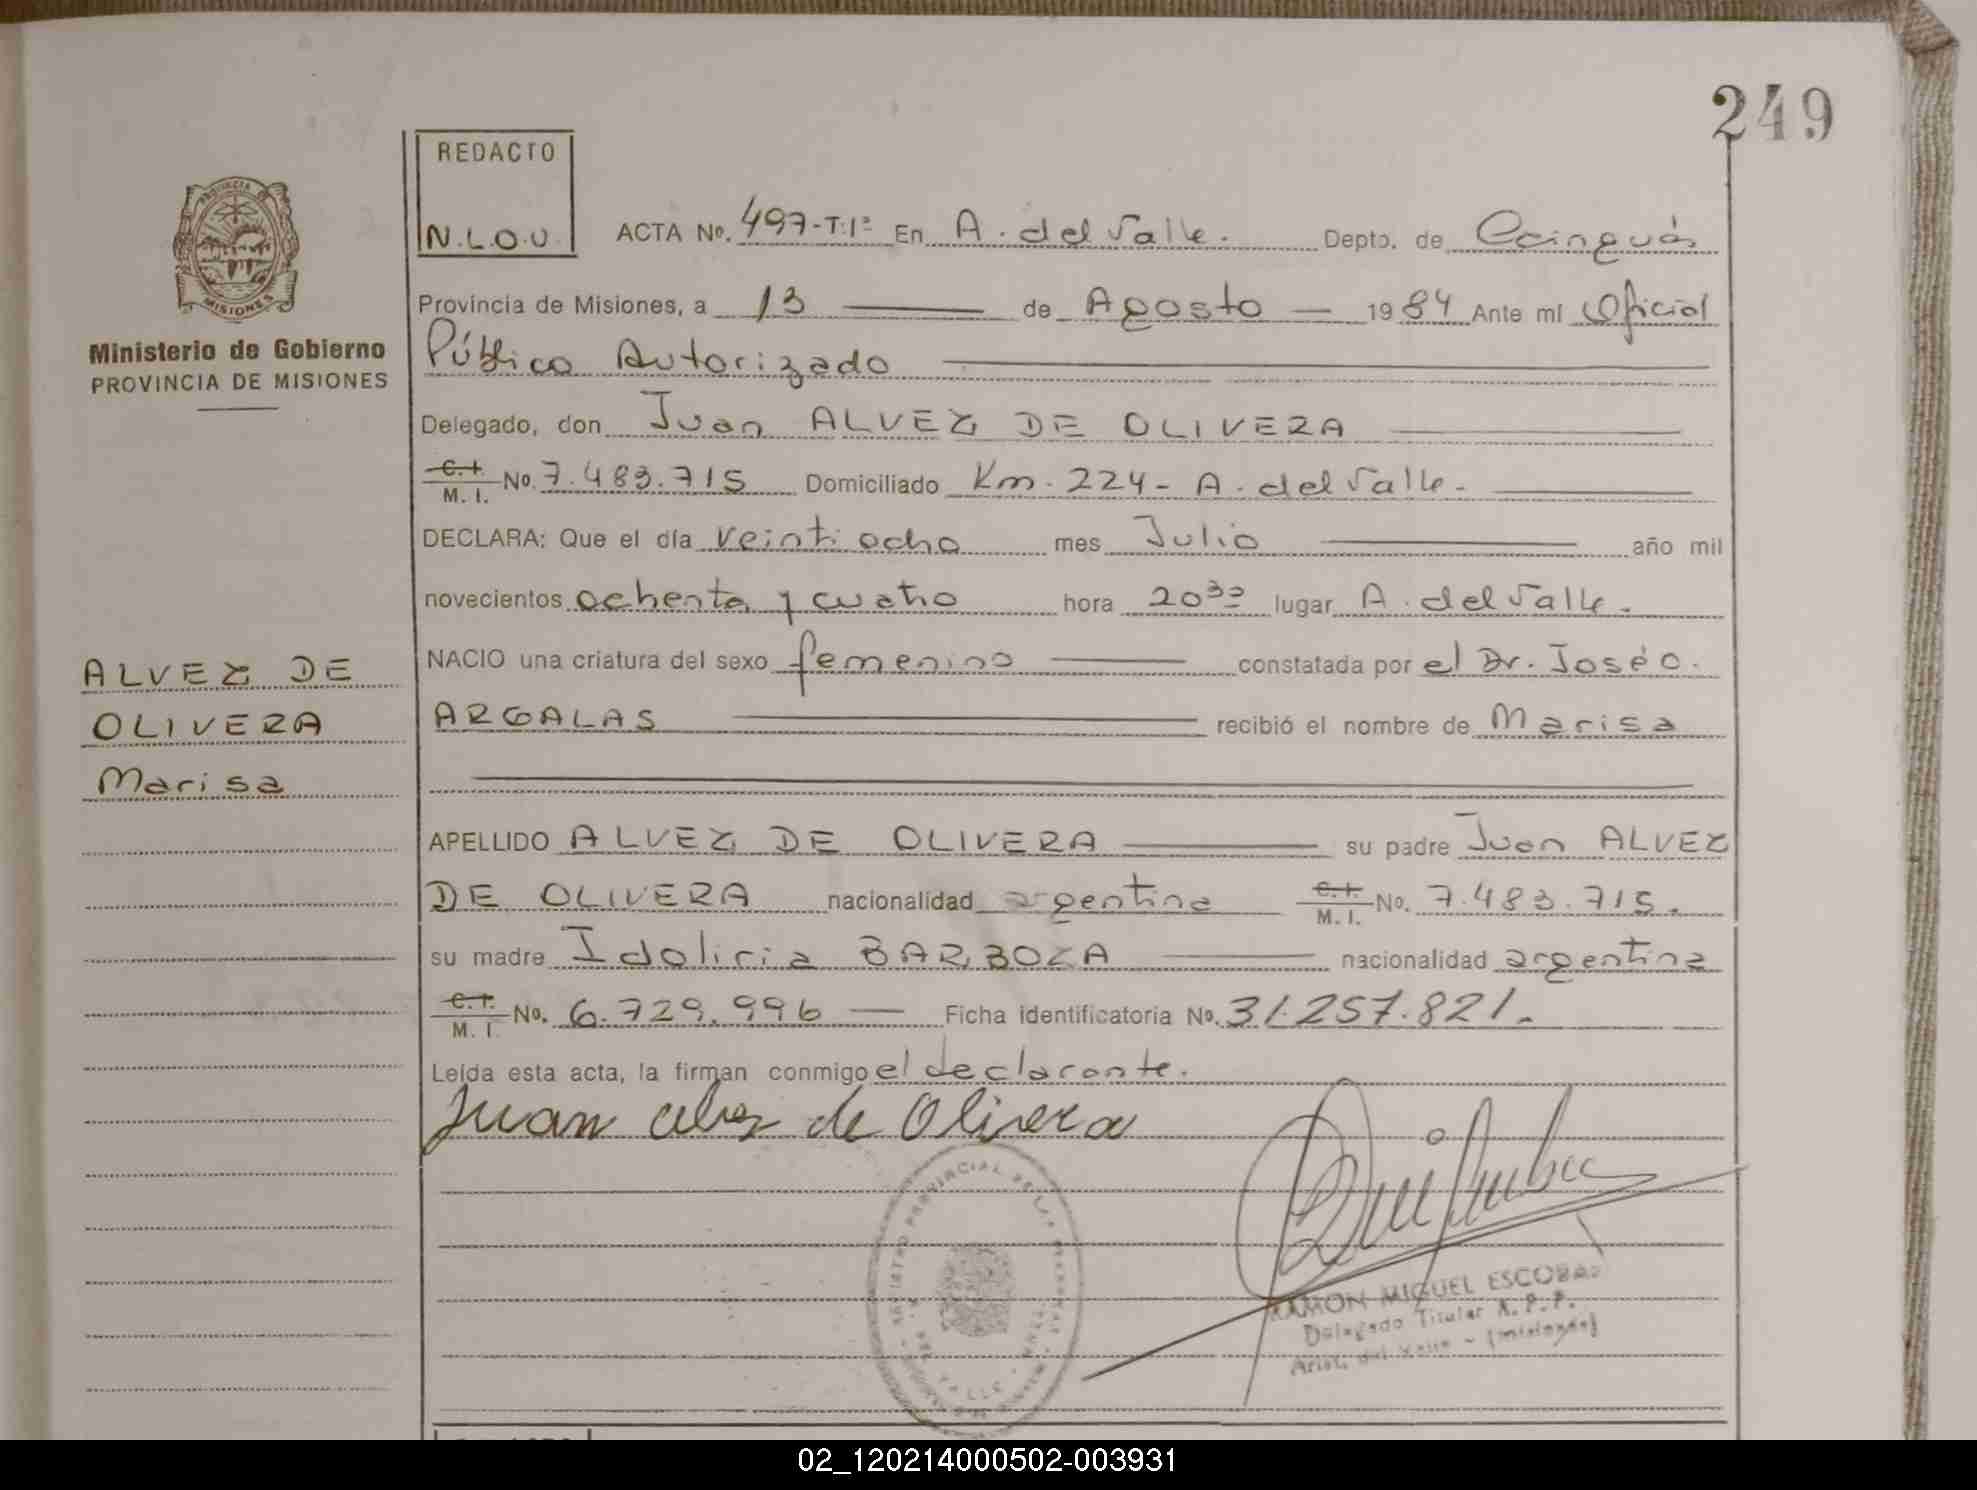 249
REDACTO
N.L.O.U.
ACTA No. 497-T:1º En A. del Valle. Depto. de Cainguás
PROVINCIA DE
MISIONES
Provincia de Misiones, a 13 de Agosto 1984 Ante mí Oficial
Ministerio de Gobierno
PROVINCIA DE MISIONES
Público Autorizado
Delegado, don Juan ALVEZ DE OLIVERA
C. I. M. I. No. 7.483.715 Domiciliado Km. 224 - A. del Valle.
DECLARA: Que el día veinti ocho mes Julio año mil
novecientos ochenta y cuatro hora 20 30 lugar A. del Valle.
NACIO una criatura del sexo femenino constatada por el Dr. José O.
ARGALAS recibió el nombre de Marisa
ALVEZ DE
OLIVERA
Marisa
APELLIDO ALVEZ DE OLIVERA su padre Juan ALVEZ
DE OLIVERA nacionalidad argentina C. I. M. I. No. 7.483.715.
su madre Idoliria BARBOZA nacionalidad argentina
C. I. M. I. No. 6.729.996 Ficha identificatoria No. 31.257.821.
Leída esta acta, la firman conmigo el declarante.
Juan alvez de Olivera
REGISTRO PROVINCIAL DE LAS PERSONAS
DEL VALLE
RAMON MIGUEL ESCOBAR
Delegado Titular R. P. P.
Arist. del Valle - (Misiones)
02_120214000502-003931